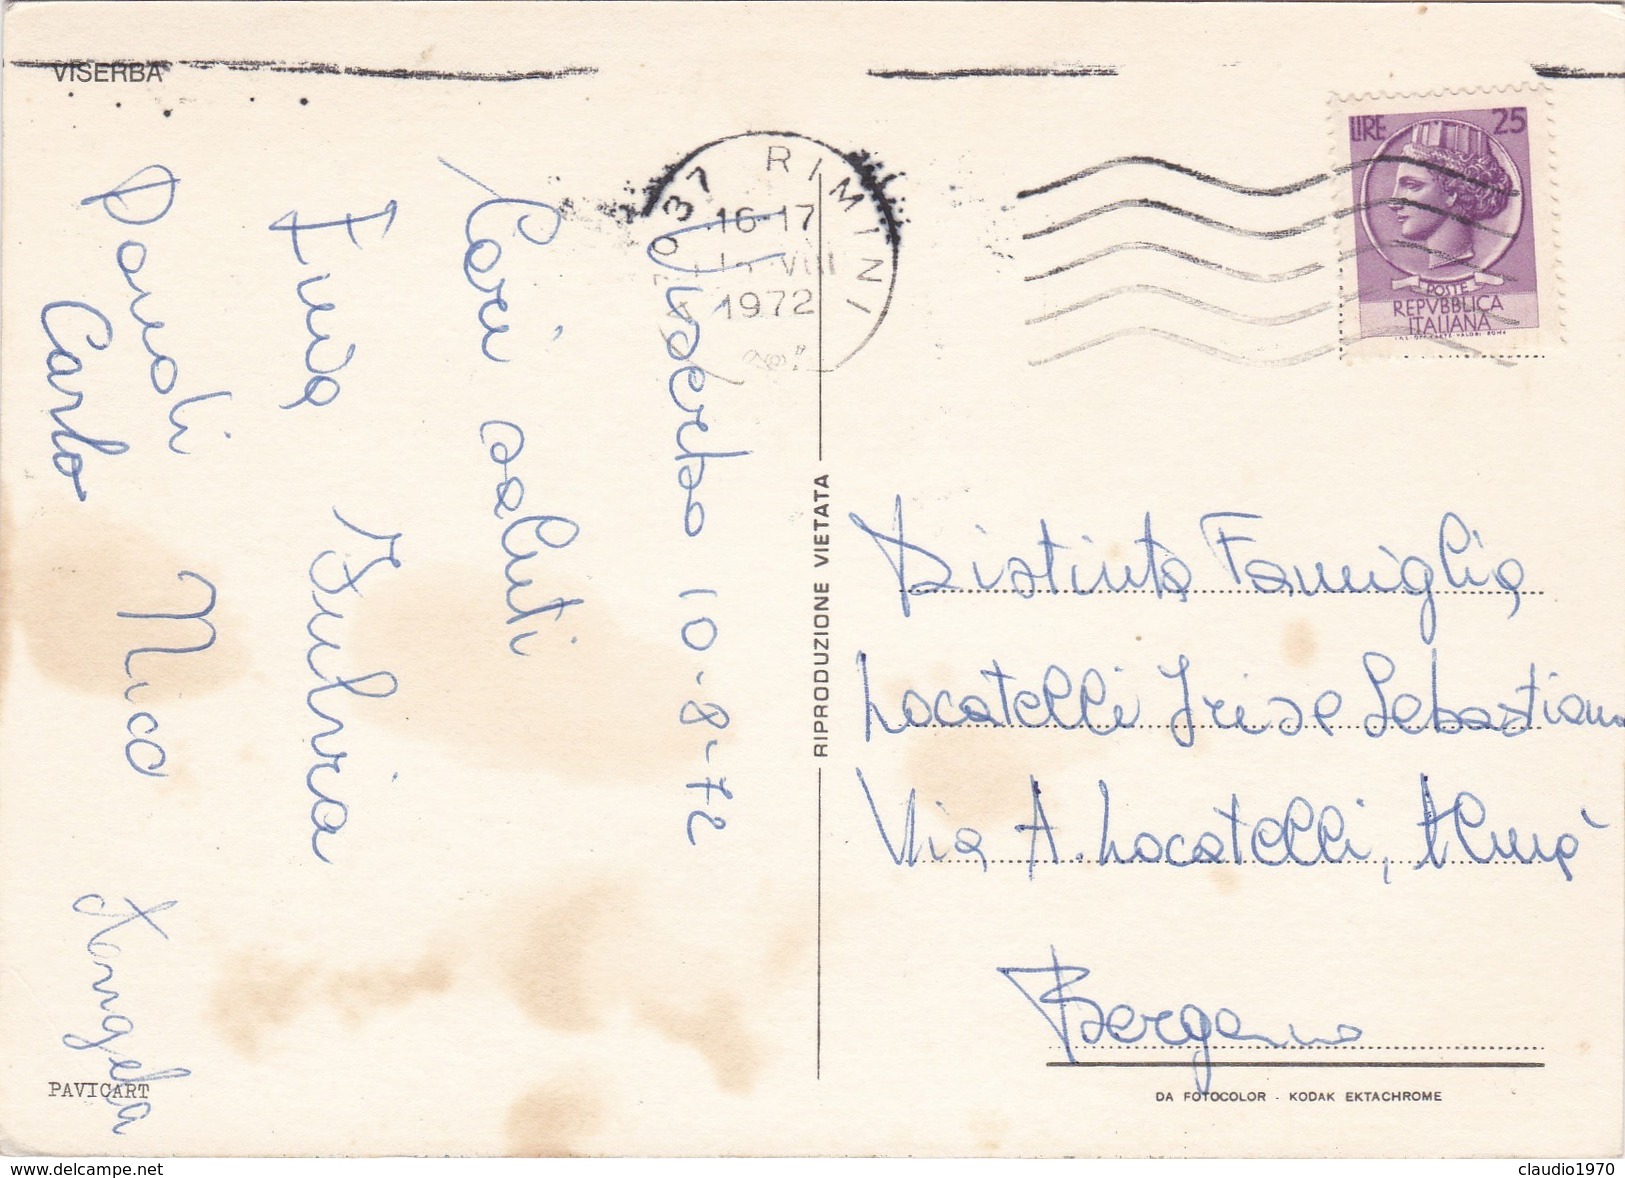 VISERBA
Viserba 10-8-72
Cari saluti
Fulvia
Carlo
Nico
Angela
PAVICART
RIPRODUZIONE VIETATA
RIMINI
16-17
VIII
1972
LIRE 25
POSTE
REPVBBLICA
ITALIANA
Distinta Famiglia
Locatelli Iris e Sebastiano
Via A. Locatelli, Almè
Bergamo
DA FOTOCOLOR - KODAK EKTACHROME
www.delcampe.net
claudio1970